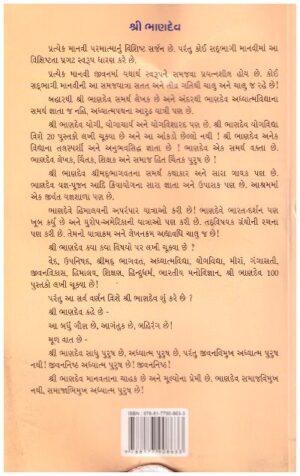 શ્રી ભાણદેવ
પ્રત્યેક માનવી પરમાત્માનું વિશિષ્ટ સર્જન છે. પરંતુ કોઈ સદ્ભાગી માનવીમાં આ
વિશિષ્ટતા પ્રગટ સ્વરૂપ ધારણ કરે છે.
પ્રત્યેક માનવી જીવનમાં યથાર્થ સ્વરૂપને સમજવા પ્રયત્નશીલ હોય છે. કોઈ
સદ્ભાગી માનવીની આ સમજયાત્રા સતત અને તીવ્ર ગતિથી ચાલુ અને ચાલુ જ રહે છે!
બહારથી શ્રી ભાણદેવ સમર્થ લેખક છે અને અંદરથી ભાણદેવ અધ્યાત્મવિદ્યાના
સમર્થ જ્ઞાતા જ નહિ, અધ્યાત્મપથના આરૂઢ યાત્રી પણ છે.
શ્રી ભાણદેવ યોગી, યોગાચાર્ય અને યોગવિશારદ પણ છે. શ્રી ભાણદેવ યોગવિદ્યા
વિશે 20 પુસ્તકો લખી ચૂક્યા છે અને આ આંકડો છેલ્લો નથી! શ્રી ભાણદેવ અનેક
વિદ્યાના તલસ્પર્શી અને અનુભવસિદ્ધ જ્ઞાતા છે. ભાણદેવ એક સમર્થ વક્તા છે.
ભાણદેવ લેખક, ચિંતક, શિક્ષક અને સમાજ હિત ચિંતક પુરુષ છે!
શ્રી ભાણદેવ શ્રીમદ્ભાગવતના સમર્થ કથાકાર અને સારા ગાયક પણ છે.
ભાણદેવ યજ્ઞ-પૂજન આદિ ક્રિયાયોગના સારા જ્ઞાતા અને ઉપાસક પણ છે. આશ્રમમાં
એક જીવંત યજ્ઞશાળા પણ છે.
ભાણદેવે હિમાલયની અપરંપાર યાત્રાઓ કરી છે! ભાણદેવે ભારત-દર્શન પણ
ખૂબ કર્યું છે અને યુરોપ-અમેરિકાની યાત્રાઓ પણ કરી છે. તદ્વિષયક ગ્રંથોની રચના
પણ કરી છે. તેમનો યાત્રાક્રમ અને લેખનક્રમ અદ્યાવધિ ચાલુ જ છે!
શ્રી ભાણદેવ કયા કયા વિષયો પર લખી ચૂક્યા છે ?
વેદ, ઉપનિષદ, શ્રીમદ્ ભાગવત, અધ્યાત્મવિદ્યા, યોગવિદ્યા, મીરાં, ગંગાસતી,
જીવનવિકાસ, હિમાલય, શિક્ષણ, હિન્દુધર્મ, ભારતીય મનોવિજ્ઞાન, શ્રી ભાણદેવ 100
પુસ્તકો લખી ચૂક્યા છે!
પરંતુ આ સર્વ વર્ણન વિશે શ્રી ભાણદેવ શું કરે છે ?
શ્રી ભાણદેવ કહે છે -
આ બધું ગૌણ છે, આગંતુક છે, બહિરંગ છે!
મૂળ વાત છે -
શ્રી ભાણદેવ સાધુ પુરુષ છે, અધ્યાત્મ પુરુષ છે, પરંતુ જીવનવિમુખ અધ્યાત્મ પુરુષ
નથી! જીવનનિષ્ઠ અધ્યાત્મ પુરુષ છે! જીવનનિષ્ઠ!
શ્રી ભાણદેવ માનવતાના ચાહક અને મૂલ્યોના પ્રેમી છે. ભાણદેવ સમાજવિમુખ
નથી, સમાજાભિમુખ અધ્યાત્મ પુરુષ છે!